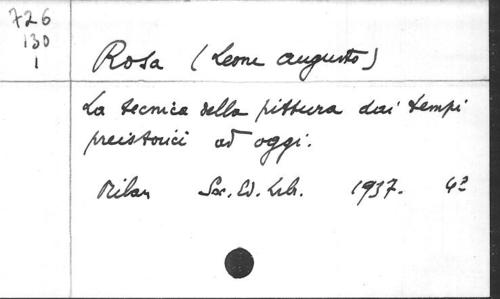 726
130
1
Rosa (Leone Augusto)
La tecnica della pittura dai tempi
preistorici ad oggi.
Milan Soc. Ed. Lib. 1937. 4º